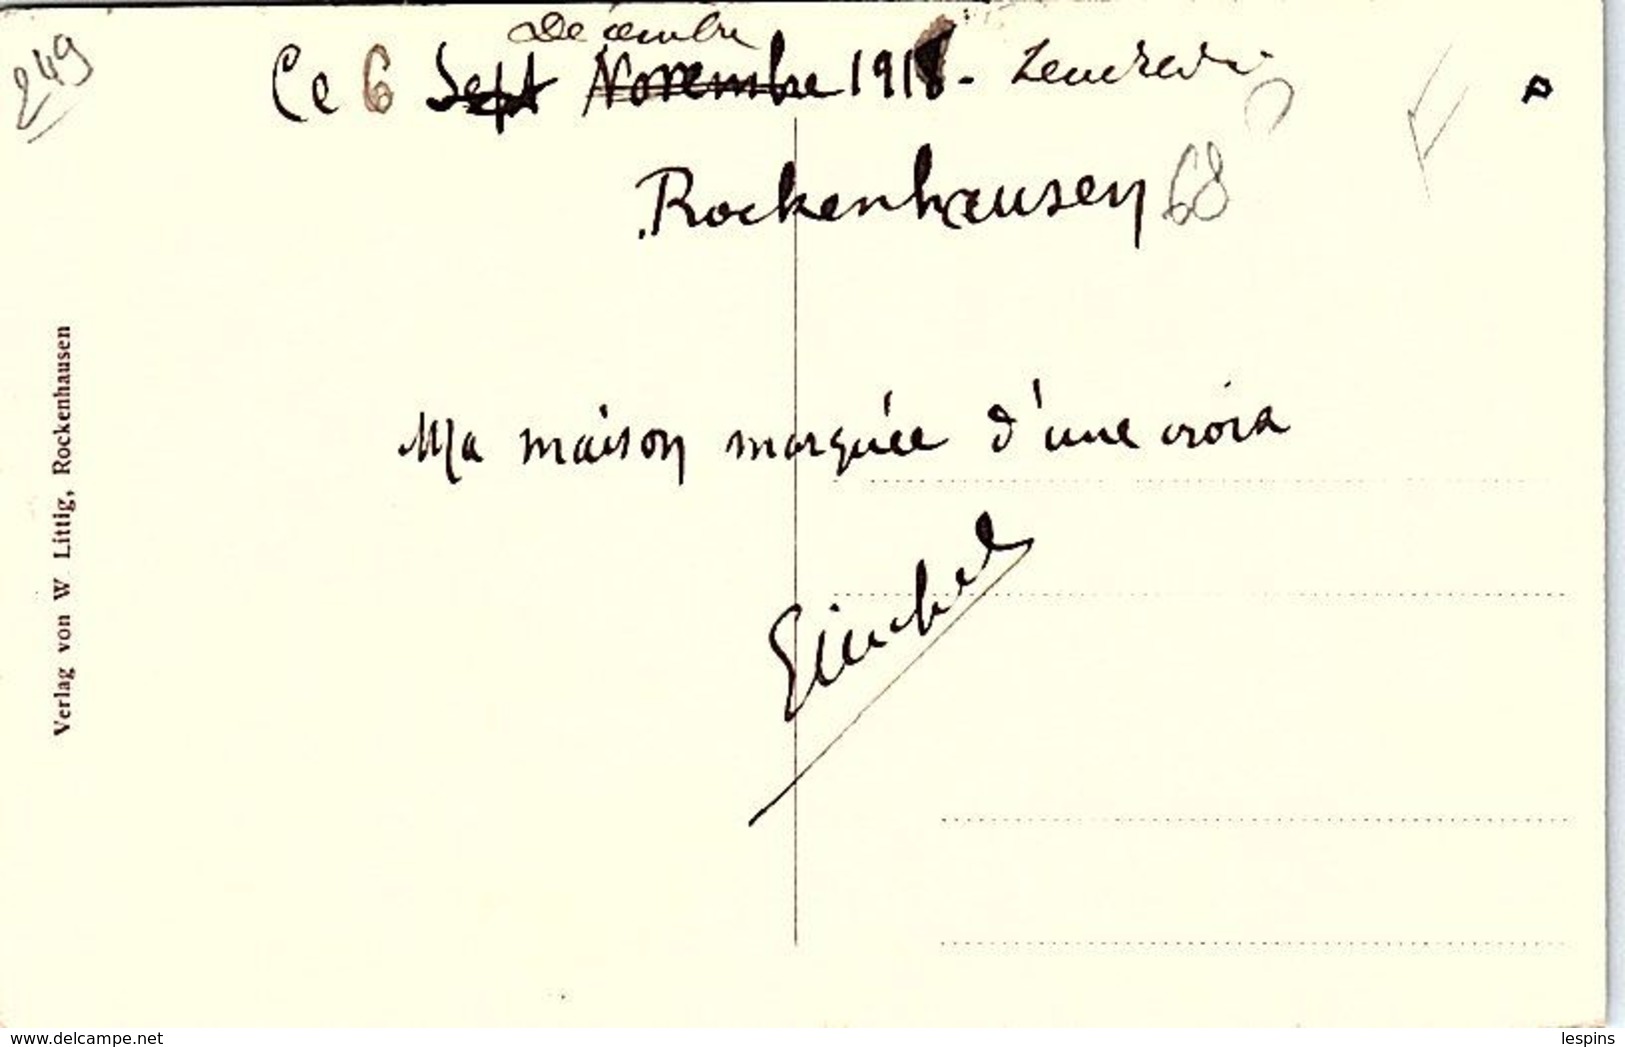 249
Décembre
Ce 6 Sept Novembre 1918 - Vendredi
Rockenhausen 68
Ma maison marquée d'une croix
Verlag von W Littig, Rockenhausen
www.delcampe.net
lespins